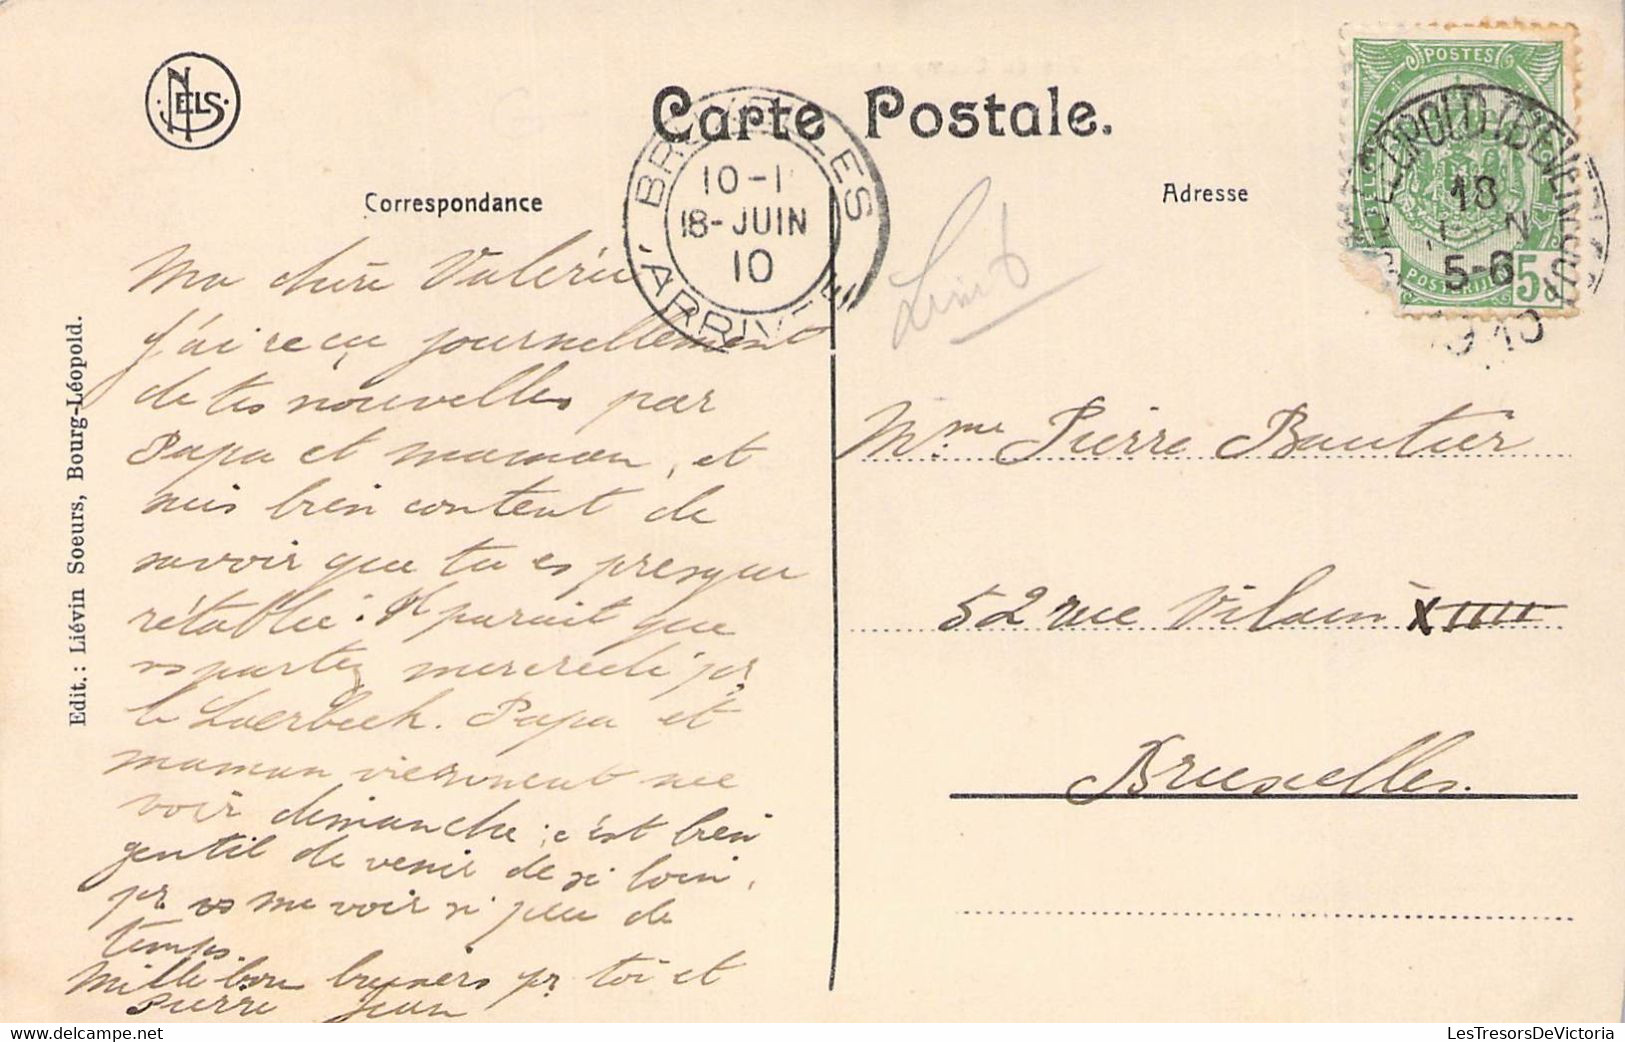 NELS
Carte Postale.
Correspondance
Adresse
BRUXELLES
10-1
18-JUIN
10
ARRIVÉE
POSTES
BOURG-LEOPOLD (BEVERLOO)
18
5-6
1910
POSTERIJEN
5c
Edit.: Liévin Soeurs, Bourg-Léopold.
Ma chère Valérie
J'ai reçu journellement
de tes nouvelles par
Papa et maman, et
suis bien content de
savoir que tu es presque
rétablie. Il parait que
vs partez mercredi pr
le Laerbeek. Papa et
maman viennent me
voir dimanche; c'est bien
gentil de venir de si loin,
pr me voir si peu de
temps.
Mille bon baisers pr toi et
Pierre Jean
Mme Pierre Bautier
52 rue Vilain XIIII
Bruxelles.
LesTresorsDeVictoria